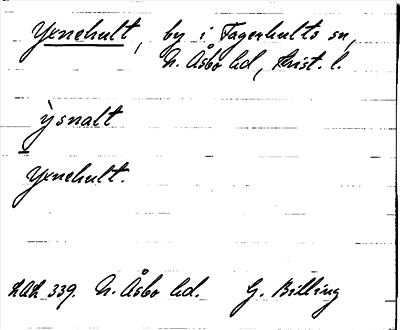 Yxnehult, by i Fagerhults sn,
N. Åsbo hd, Krist. l.
ỳsnalt
Yxnehult.
LAL 339. N. Åsbo hd. G. Billing